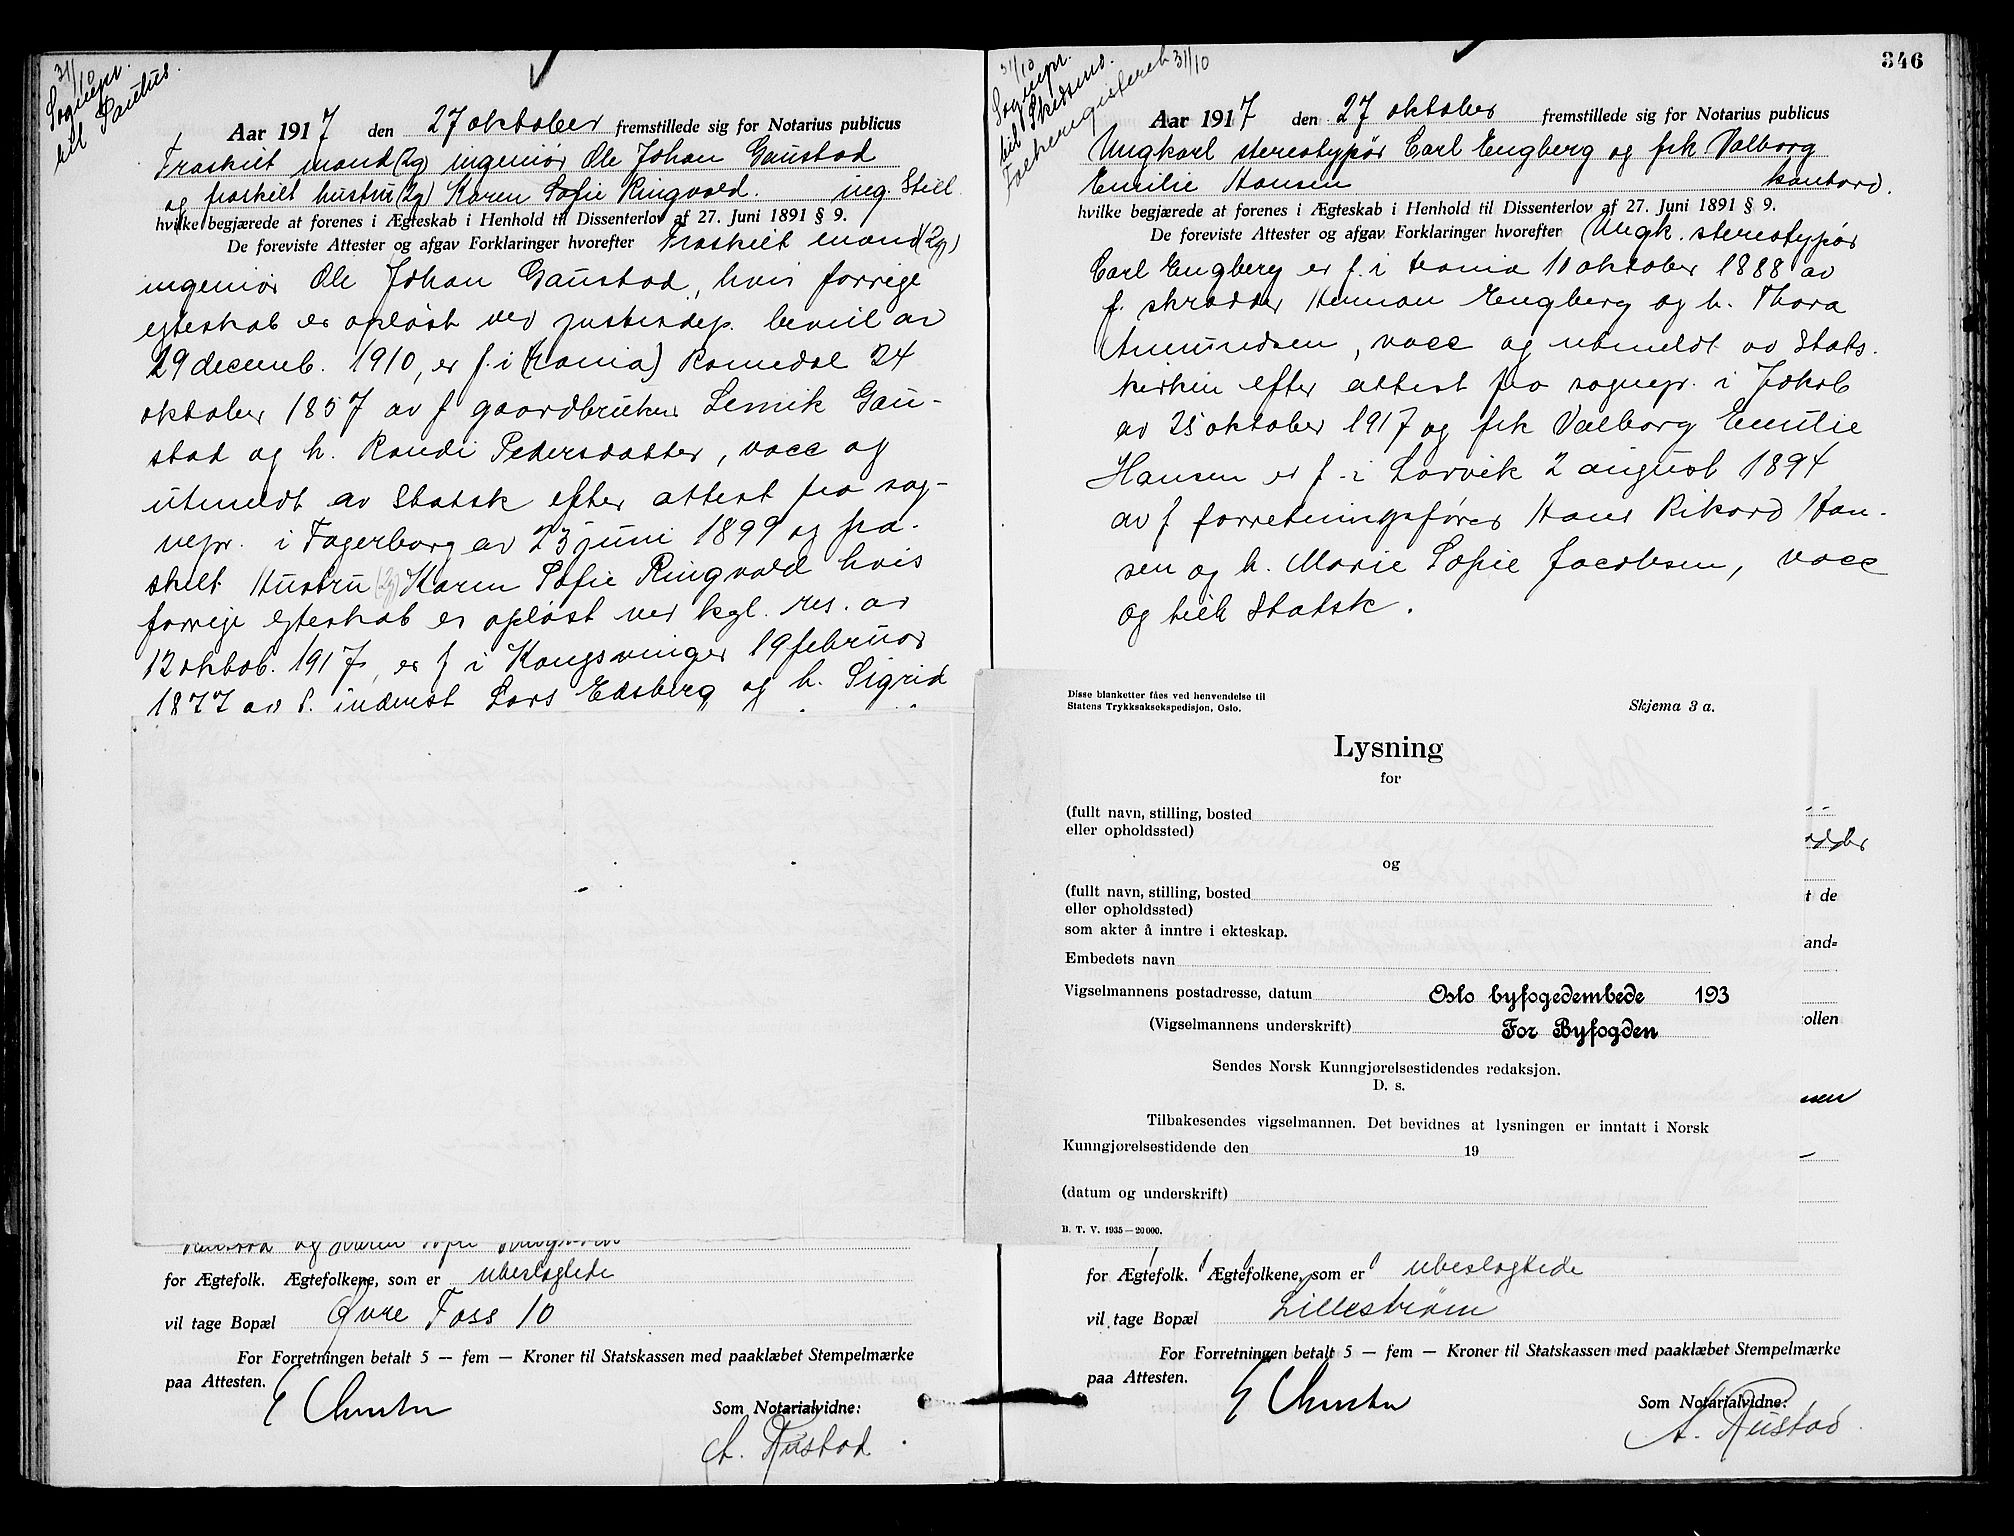 31/10
Sognepr.
til Paulus.
Aar 1917 den 27 oktober fremstillede sig for Notarius publicus
Fraskilt mand (2g) ingeniør Ole Johan Gaustad
og fraskilt hustru (2g) Karen Sofie Ringvold. ing. Still
hvilke begjærede at forenes i Ægteskab i Henhold til Dissenterlov af 27. Juni 1891 § 9.
De foreviste Attester og afgav Forklaringer hvorefter Fraskilt mand (2g)
ingeniør Ole Johan Gaustad, hvis forrige
egteskab er opløst ved justisdep. bevil av
29 decemb. 1910, er f. i (krania) Romedal 24
oktober 1857 av f gaardbruker Lemik Gau-
stad og h. Randi Pedersdatter, vacc og
utmeldt av Statsk efter attest fra sog-
nepr. i Fagerborg av 23 juni 1899 og fra-
skilt Hustru (2g) Karen Sofie Ringvold hvis
forrige egteskab er opløst ved kgl. res. av
12 oktob. 1917, er f i Kongsvinger 19 februar
1877 av f. inderst Lars Edsberg og h. Sigrid
for Ægtefolk. Ægtefolkene, som er ubeslagtede
vil tage Bopæl Øvre Foss 10
For Forretningen betalt 5 — fem — Kroner til Statskassen med paaklæbet Stempelmærke
paa Attesten.
Som Notarialvidne:
A. Rustad
346
31/10
Sognepr.
til Skedsmo.
Folkeregisteret 31/10
Aar 1917 den 27 oktober fremstillede sig for Notarius publicus
Ungkarl stereotypør Carl Engberg og frk Valborg
Emilie Hansen kontord.
hvilke begjærede at forenes i Ægteskab i Henhold til Dissenterlov af 27. Juni 1891 § 9.
De foreviste Attester og afgav Forklaringer hvorefter Ungk. stereotypør
Carl Engberg er f. i krania 10 oktober 1888 av
f. skrædder Herman Engberg og h. Thora
Amundsen, vacc og utmeldt av Stats.
kirken efter attest fra sognepr. i Jakob
av 25 oktober 1917 og frk Valborg Emilie
Hansen er f. i Larvik 2 august 1894
av f forretningsfører Hans Rikard Han-
sen og h. Marie Sofie Jacobsen, vacc
og tilh Statsk.
Disse blanketter fåes ved henvendelse til
Statens Trykksaksekspedisjon, Oslo.
Skjema 3 a.
Lysning
for
(fullt navn, stilling, bosted
eller opholdssted)
og
(fullt navn, stilling, bosted
eller opholdssted)
som akter å inntre i ekteskap.
Embedets navn
Vigselmannens postadresse, datum Oslo byfogedembede 193
(Vigselmannens underskrift) For Byfogden
Sendes Norsk Kunngjørelsestidendes redaksjon.
D. s.
Tilbakesendes vigselmannen. Det bevidnes at lysningen er inntatt i Norsk
Kunngjørelsestidende den 19
(datum og underskrift)
B. T. V. 1935—20000.
t de
and=
ollen
for Ægtefolk. Ægtefolkene, som er ubeslagtede
vil tage Bopæl Lillestrøm
For Forretningen betalt 5 — fem — Kroner til Statskassen med paaklæbet Stempelmærke
paa Attesten.
Som Notarialvidne:
A. Rustad